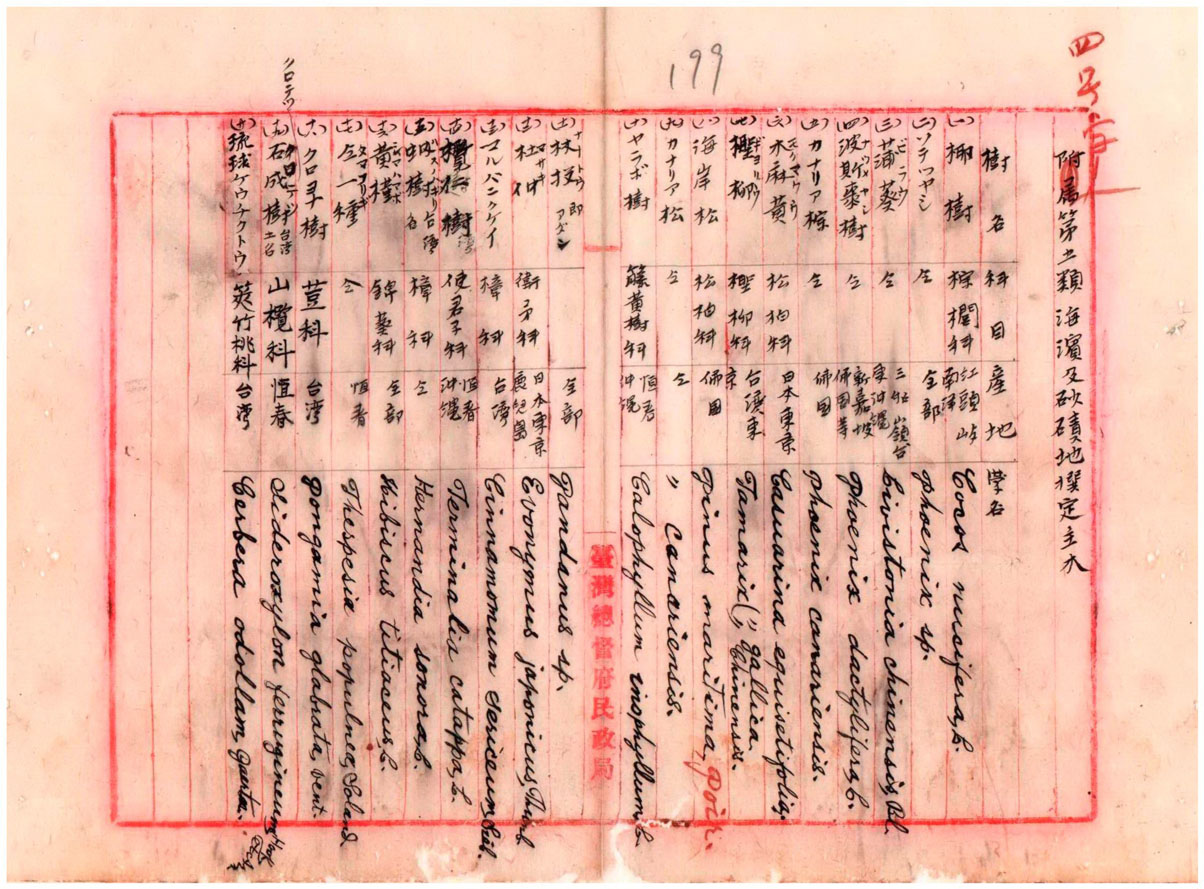 199
附属第五類 海濱及砂磧地撰定主木
樹名 科目 産地 学名
(一) 椰樹 棕櫚科 紅頭屿 南洋 Cocos nusifera, L.
(二) ソテツヤシ 仝 仝部 Phoenix sp.
(三) 蒲葵 ビラウ 仝 Livistonia chinensis, Bl.
(四) 波斯棗樹 仝 新嘉坡 佛国等 Phoenix dactylifera, L.
(五) カナリア棕 仝 佛國 Phoenix canariensis.
(六) 木麻黄 モクマワウ 松柏科 日本東京 Casuarina equisetifolia,
(七) 檉柳 ギョリウ 檉柳科 台湾 東京 Tamarix (〃 gallica. Chinensis.
(八) 海岸松 松柏科 佛国 Pinus maritima, Poir.
(九) カナリア松 仝 仝 〃 Canariensis.
(十) ヤラボ樹 藤黄樹科 恒春 沖縄 Calophyllum inophyllum L.
臺灣總督府民政局
(十一) 林投 即アダン 仝部 Pandanus sp.
(十二) 杜仲 マサキ 衛矛科 日本東京 鹿児島 Evonymus japonicus, Thunb
(十三) マルバニクケイ 樟科 台湾 Cinnamomum sericeum, Sieb.
(十四) 欖仁樹 使君子科 恒春 沖縄 Terminalia catappa, L.
(十五) 台湾名 樟科 仝 Hernandia sonora L.
(十六) 黄樹 錦葵科 仝部 Hibiscus tiliaceus, L.
(十七) 仝一種 仝 恒春 Thespesia populnea, Soland
(十八) クロヨナ樹 荳科 台湾 Pongamia glabrata, vent.
(十九) 石成樹 クロテツ 台湾土名 山欖科 恒春 Sideroxylon ferrugineum, Hook
(廿) 琉球ケウチクトウ 筴竹桃科 台湾 Cerbera odollam, Gaertn.
クロテツ